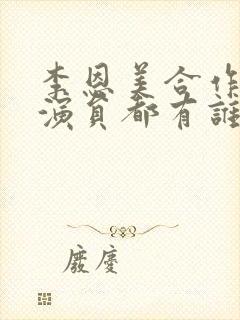 李恩美合作
演員都有誰
廢慶